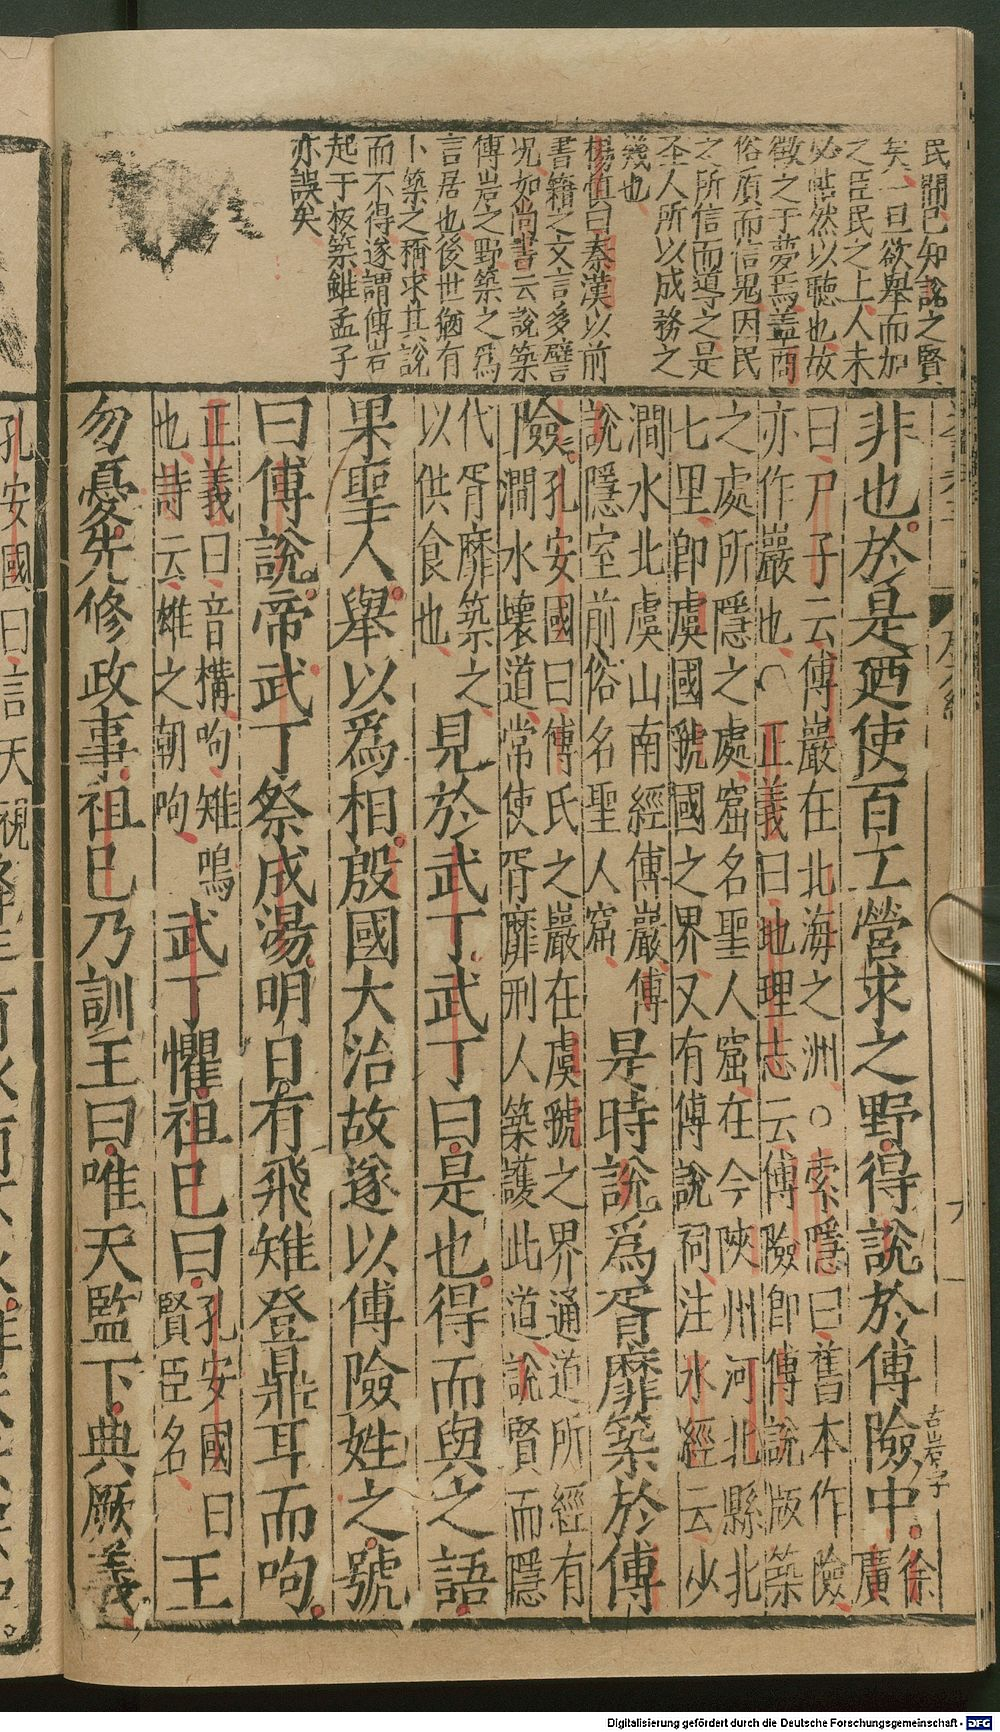 民間已知說之賢
矣一旦欲舉而加
之臣民之上人未
必帖然以聽也故
徵之于夢焉蓋商
俗質而信鬼因民
之所信而導之是
圣人所以成務之
幾也
楊慎曰秦漢以前
書籍之文言多譬
况如尚書云說築
傅岩之野築之為
言居也後世猶有
卜築之稱求其說
而不得遂謂傅岩
起于板築雖孟子
亦誤矣
非也於是廼使百工營求之野得說於傅險中徐
廣
曰尸子云傅巖在北海之洲○索隱曰舊本作險
亦作巖也○正義曰地理志云傅險即傅說版築
之處所隱之處窟名聖人窟在今陝州河北縣北
七里即虞國虢國之界又有傅說祠注水經云沙
澗水北虞山南經傅巖傅
說隱室前俗名聖人窟
是時說為胥靡築於傅
險
孔安國曰傅氏之巖在虞虢之界通道所經有
澗水壞道常使胥靡刑人築護此道說賢而隱
代胥靡築之
以供食也
見於武丁武丁曰是也得而與之語
果聖人舉以為相殷國大治故遂以傅險姓之號
曰傅說帝武丁祭成湯明日有飛雉登鼎耳而呴
正義曰音構呴雉鳴
也詩云雊之朝呴
武丁懼祖己曰
孔安國曰
賢臣名
王
勿憂先修政事祖己乃訓王曰唯天監下典厥義
孔安國曰言天視
Digitalisierung gefördert durch die Deutsche Forschungsgemeinschaft - DFG